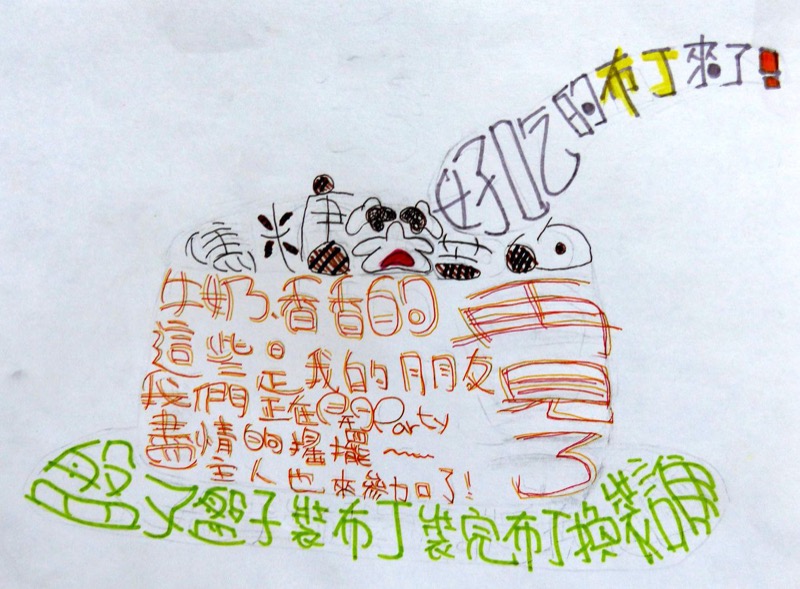 好吃的布丁來了!
焦糖
牛奶、香香的
這些是我的朋友
我們正在開Party
盡情的搖擺~~
主人也來參加了!
盤子裝布丁裝完布丁換裝